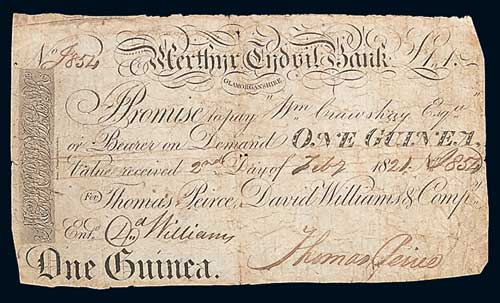 No J854 Merthyr Tydvil Bank £1,,1,,
GLAMORGANSHIRE
I Promise to pay "Wm Crawshay Esqr"
or Bearer on Demand ONE GUINEA.
Value received 2nd Day of Feby 1821. J854
For Thomas Peirce, David Williams & Compy
Entd D Williams
One Guinea. Thomas Peirce